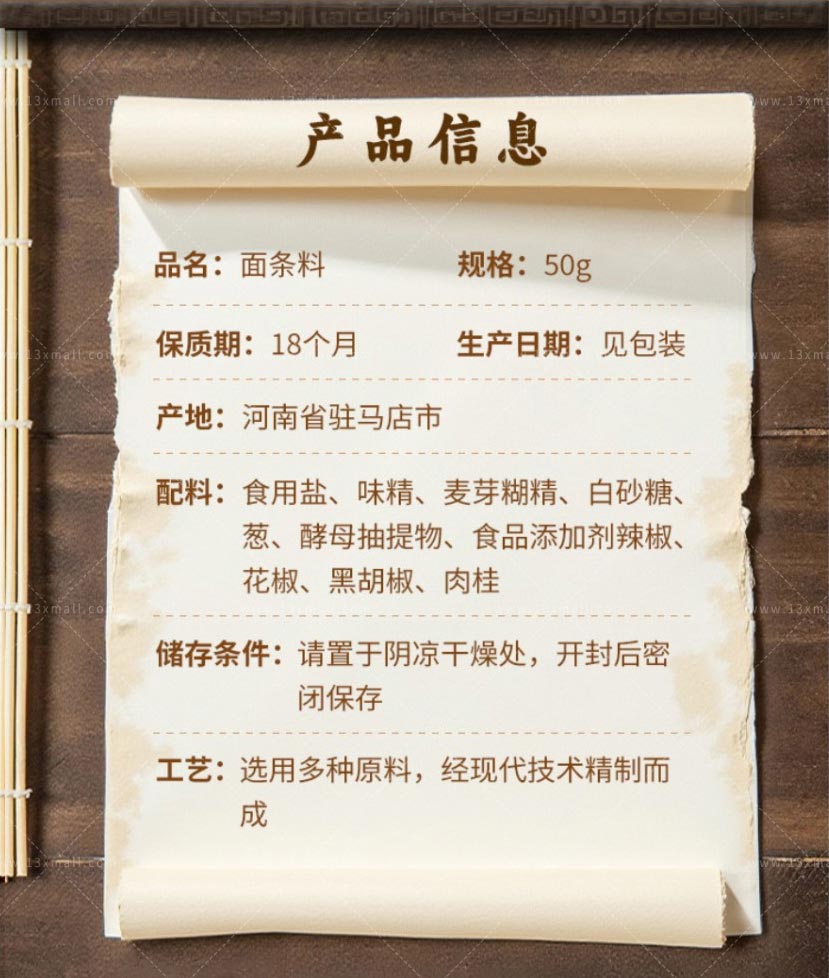 产品信息
品名：面条料 规格：50g
保质期：18个月 生产日期：见包装
产地：河南省驻马店市
配料：食用盐、味精、麦芽糊精、白砂糖、
葱、酵母抽提物、食品添加剂辣椒、
花椒、黑胡椒、肉桂
储存条件：请置于阴凉干燥处，开封后密
闭保存
工艺：选用多种原料，经现代技术精制而
成
www.13xmall.com